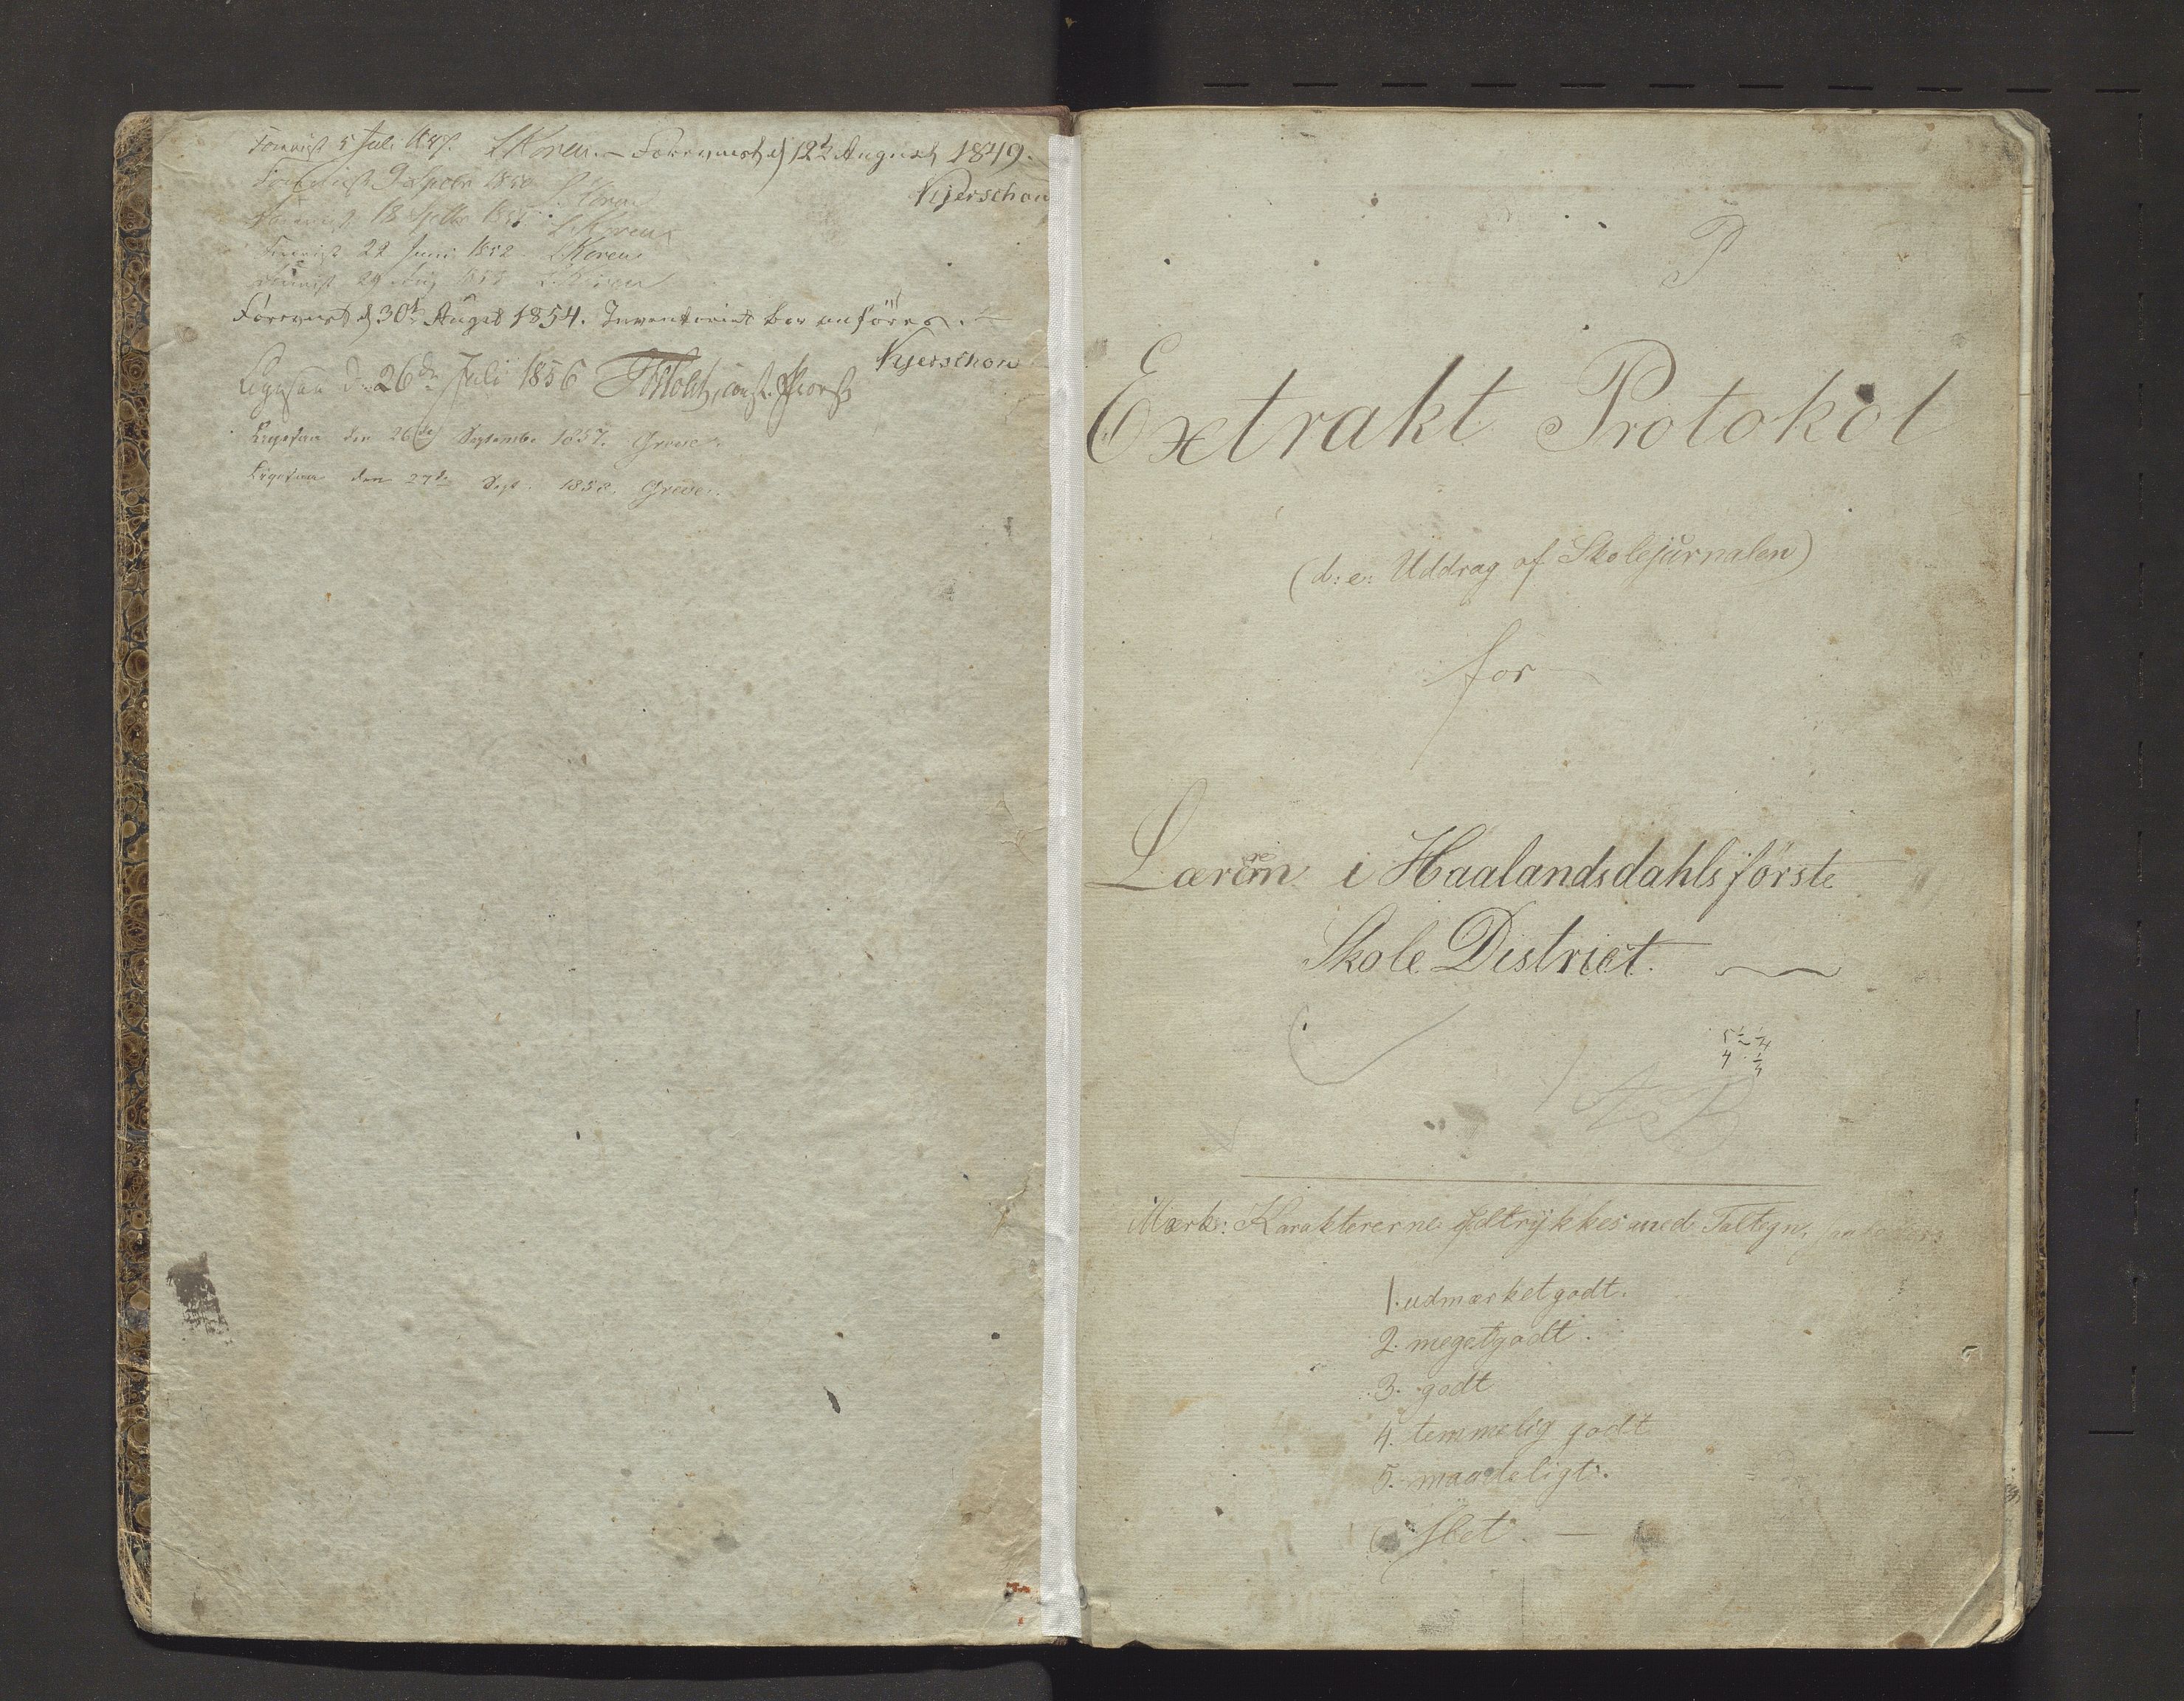 Foreviist 5 Juli 1847. L Koren. – Foreviist d 12te August 1849.
Kjerschou
Foreviist 9 Septbr 1850 L. Koren
Foreviist 18 Septbr 1851. L. Koren
Foreviist 22 Juni 1852. L Koren
Foreviist 29 Aug 1853 L. Koren
Foreviist d 30te August 1854. Inventariet bør anføres. –
Kjerschou
Eegesaa d. 26de Juli 1856 const. Provst
Eegesaa den 26de September 1857. Greve.
Eegesaa den 27de Sept. 1858. Greve.
P
Extrakt Protokol
(d: e: Uddrag af Skolejurnalen)
for
Læreren i Haalandsdahls første
Skole District.
Mærk: Karaktererne udtrykkes med Taltegn,
1. udmærket godt.
2. megetgodt.
3. godt
4. temmelig godt
5. maadeligt.
6 slet. —